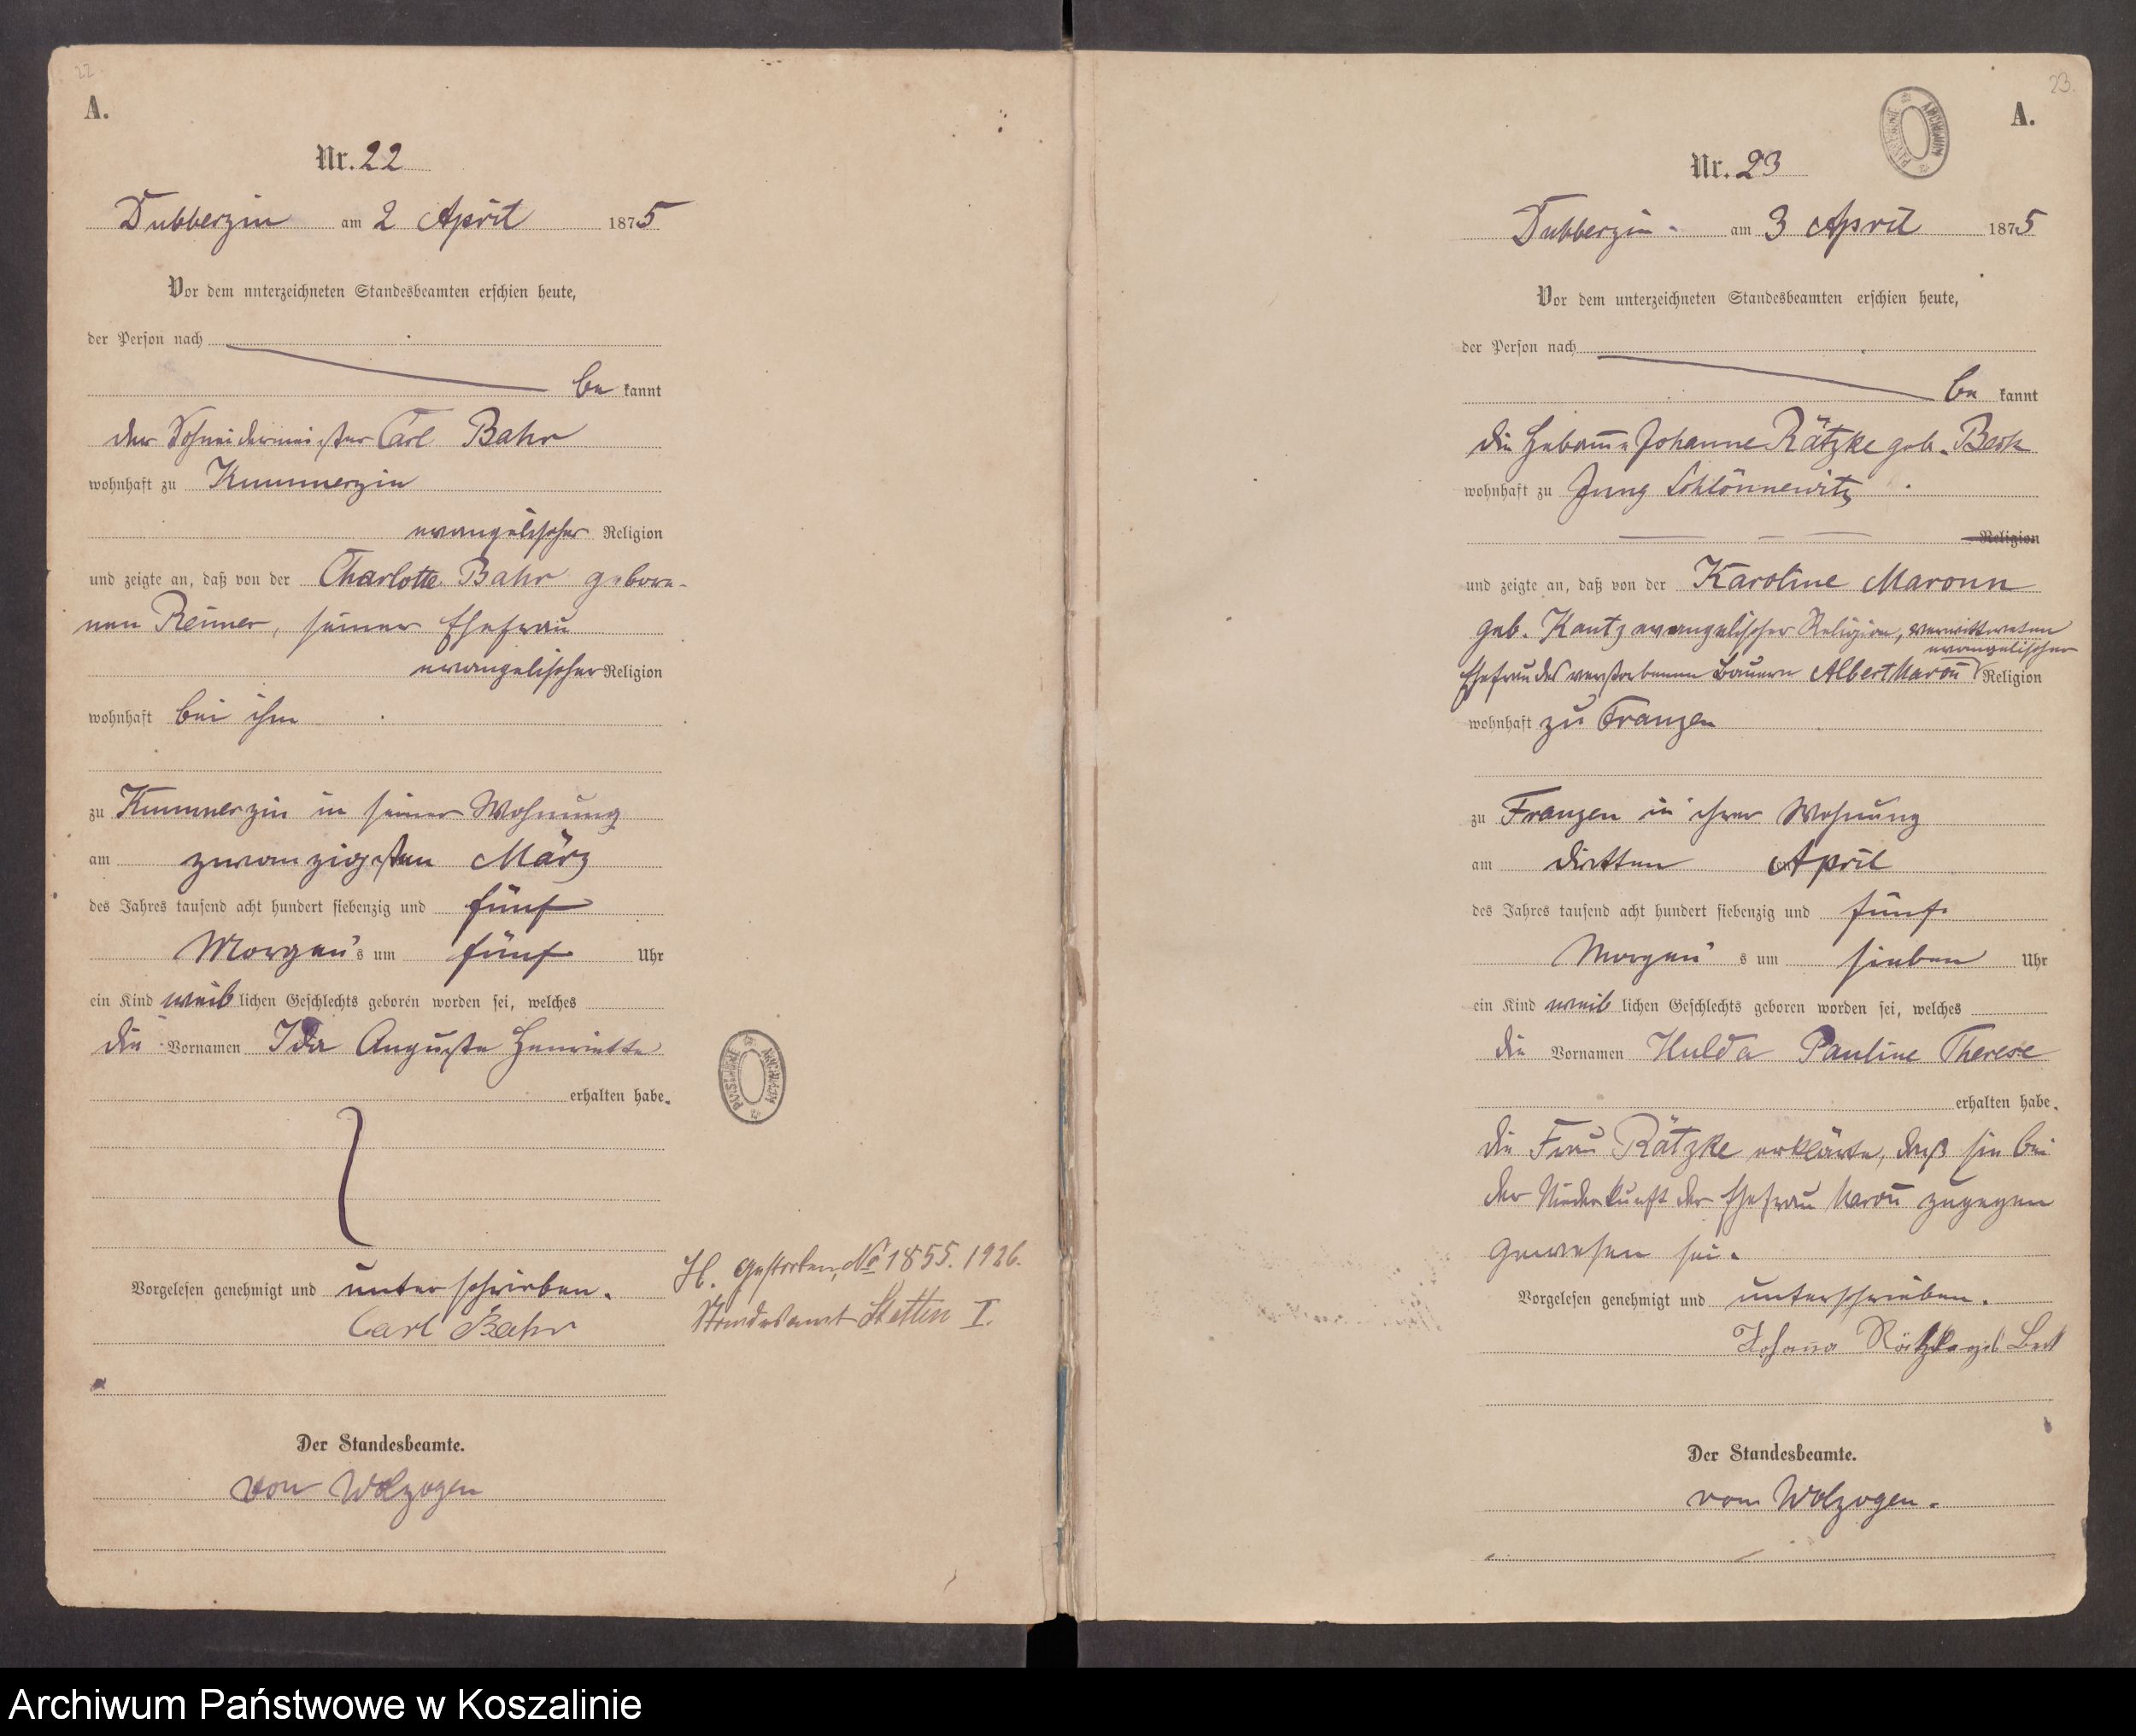 22.
A.
Nr. 22
Dubberzin am 2 April 1875
Vor dem unterzeichneten Standesbeamten erschien heute,
der Person nach
be kannt
der Schneidermeister Carl Bahr
wohnhaft zu Kummerzin
evangelischer Religion
und zeigte an, daß von der Charlotte Bahr gebore-
nen Reimer, seiner Ehefrau
evangelischer Religion
wohnhaft bei ihm
zu Kummerzin in seiner Wohnung
am zwanzigsten März
des Jahres tausend acht hundert siebenzig und fünf
Morgens um fünf Uhr
ein Kind weiblichen Geschlechts geboren worden sei, welches
die Vornamen Ida Auguste Henriette
erhalten habe.
Vorgelesen genehmigt und unterschrieben.
Carl Bahr
Der Standesbeamte.
von Wolzogen
H. Gestorben, No 1855. 1926.
Standesamt Stettin I.
ARCHIWUM PAŃSTWOWE
23.
A.
ARCHIWUM PAŃSTWOWE
Nr. 23
Dubberzin am 3 April 1875
Vor dem unterzeichneten Standesbeamten erschien heute,
der Person nach
be kannt
die Hebamme Johanne Rätzke geb. Beck
wohnhaft zu Jung Schlönnewitz
Religion
und zeigte an, daß von der Karoline Maronn
geb. Kautz evangelischer Religion, verwittweten
evangelischer
Ehefrau des verstorbenen Bauern Albert Maron̄ Religion
wohnhaft zu Franzen
zu Franzen in ihrer Wohnung
am dritten April
des Jahres tausend acht hundert siebenzig und fünf
Morgens um sieben Uhr
ein Kind weiblichen Geschlechts geboren worden sei, welches
die Vornamen Hulda Pauline Therese
erhalten habe.
die Frau Rätzke erklärte, daß sie bei
der Niederkunft der Ehefrau Maron̄ zugegen
gewesen sei.
Vorgelesen genehmigt und unterschrieben.
Johanna Rätzke geb Beck
Der Standesbeamte.
von Wolzogen.
Archiwum Państwowe w Koszalinie